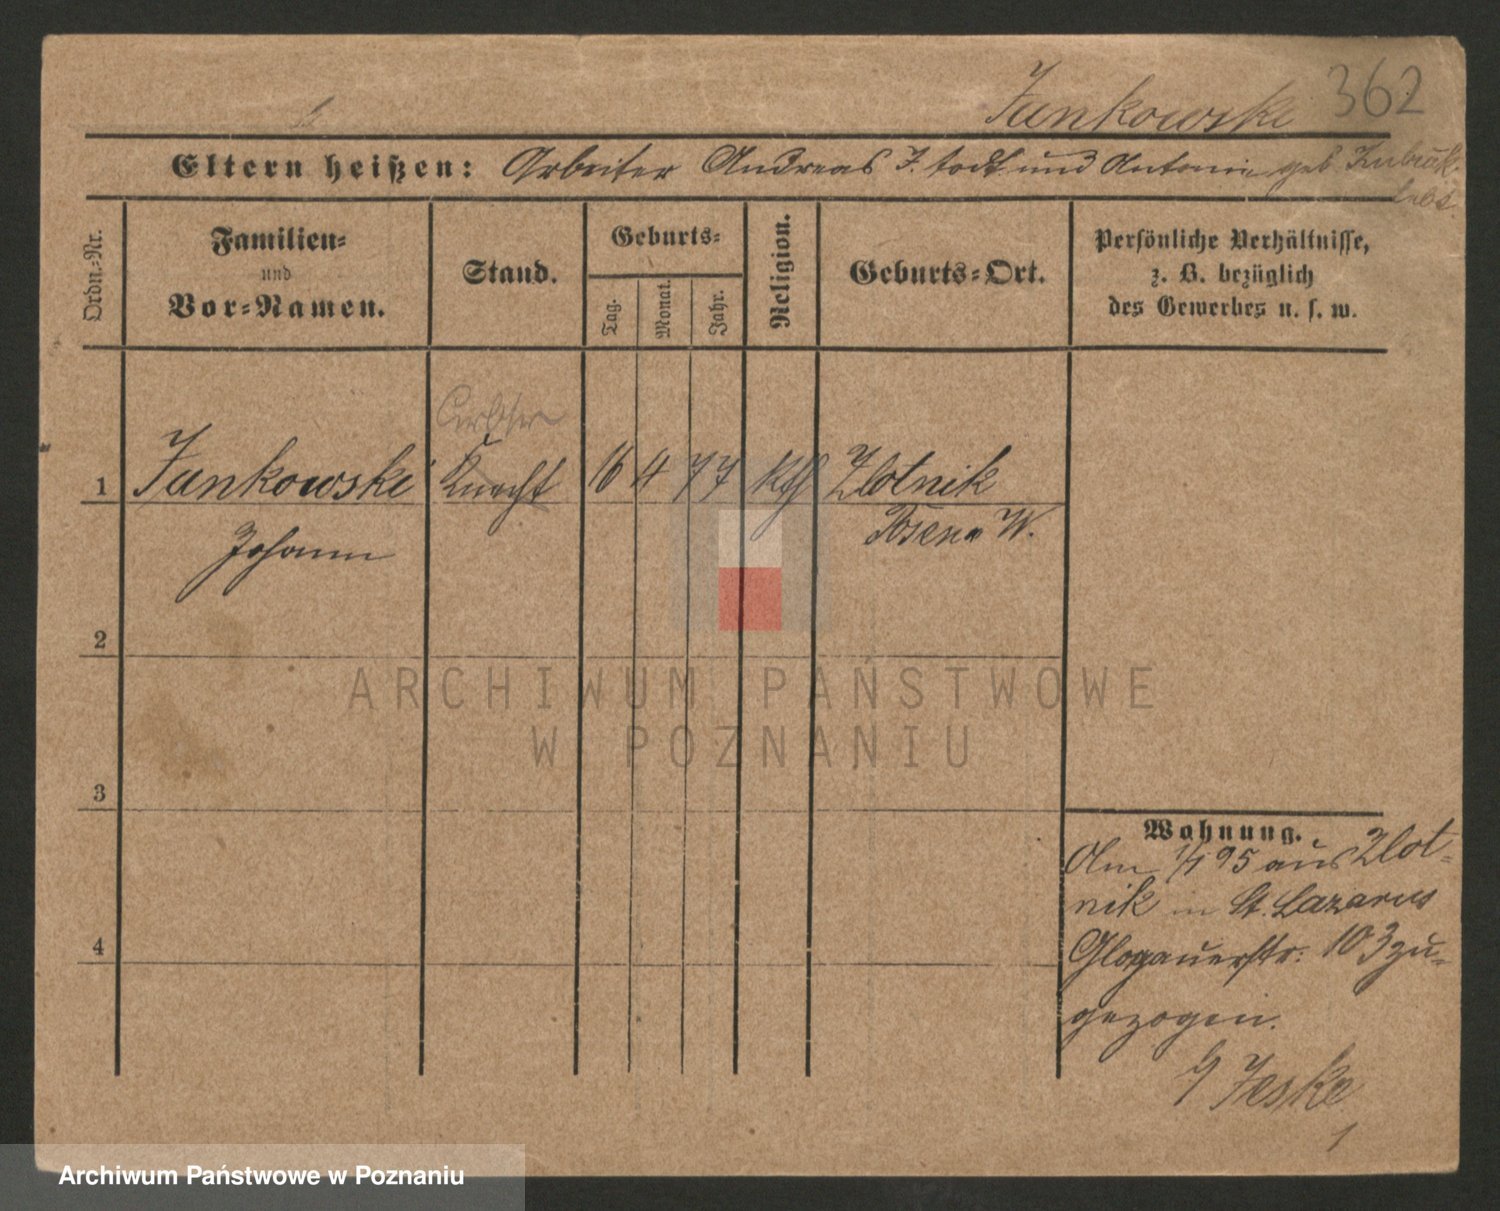 Jankowski 362
Eltern heißen: Arbeiter Andreas J. todt und Antonie geb Zubiak
lebt.
Ordn.-Nr.
Familien-
und
Vor-Namen.
Stand.
Geburts-
Tag.
Monat.
Jahr.
Religion.
Geburts-Ort.
Persönliche Verhältnisse,
z. B. bezüglich
des Gewerbes u. s. w.
1 Jankowski Knecht 16 4 77 kth Zlotnik
Johann Posen W.
2
3
4
Wohnung.
Am 1/1 95 aus Zlot-
nik in St. Lazarus
Glogauerstr. 103 zu-
gezogen.
Jeske
1
ARCHIWUM PAŃSTWOWE
W POZNANIU
Archiwum Państwowe w Poznaniu